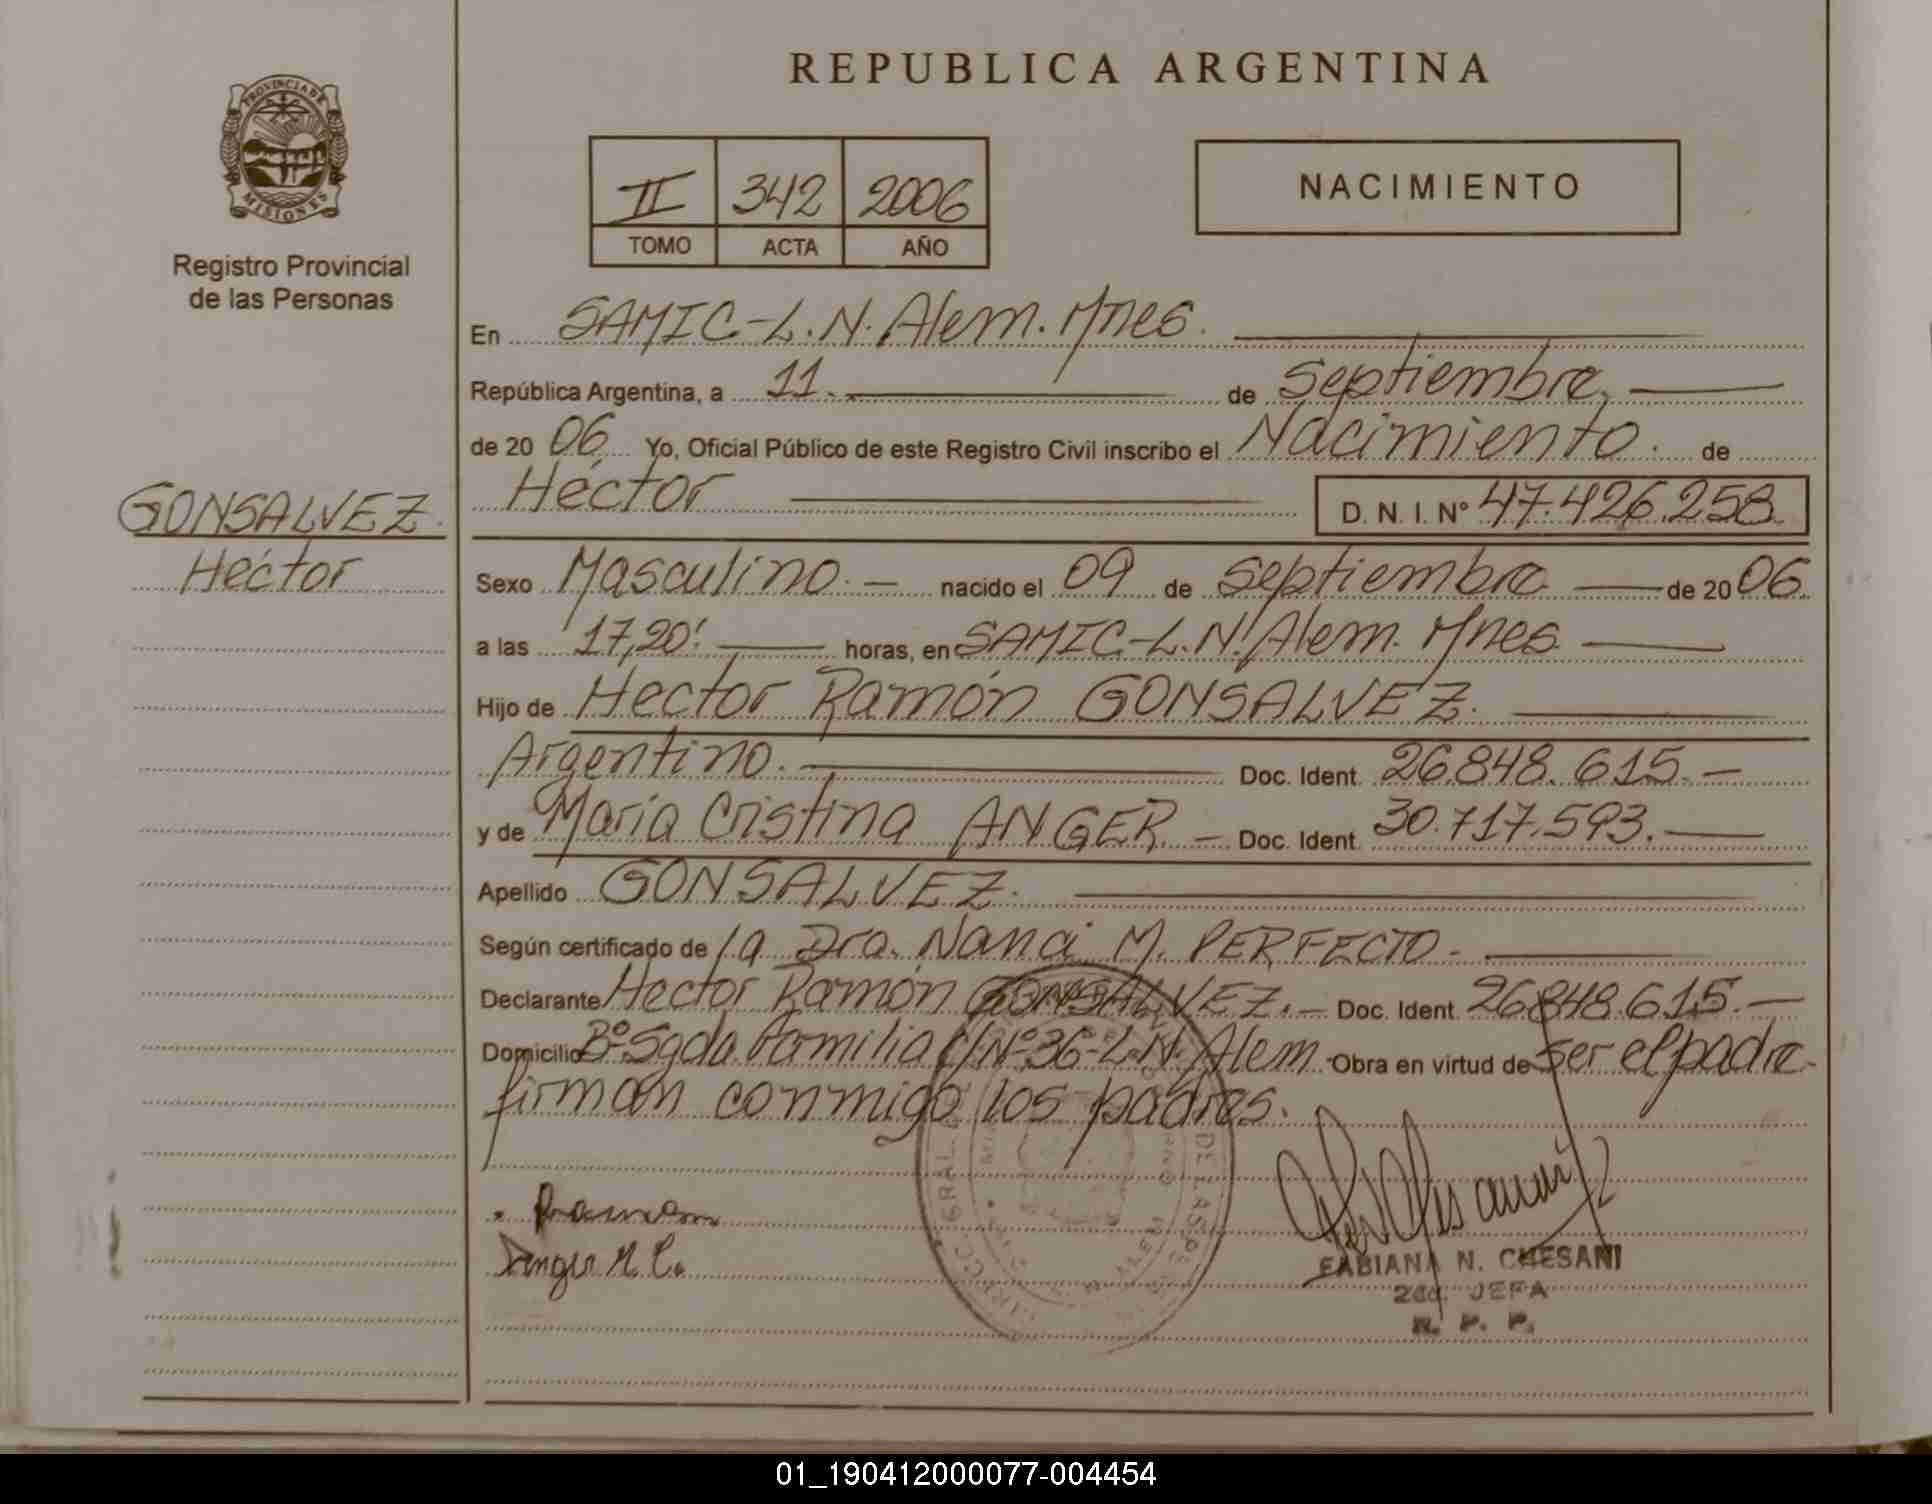 REPUBLICA ARGENTINA
PROVINCIA DE
MISIONES
Registro Provincial
de las Personas
II 342 2006
TOMO ACTA AÑO
NACIMIENTO
En SAMIC-L.N. Alem. Mnes.
República Argentina, a 11. de Septiembre,
de 20 06 Yo, Oficial Público de este Registro Civil inscribo el Nacimiento. de
Héctor D. N. I. Nº 47.426.258
GONSALVEZ.
Héctor
Sexo Masculino. nacido el 09 de Septiembre de 20 06.
a las 17,20' horas, en SAMIC-L.N. Alem. Mnes
Hijo de Hector Ramón GONSALVEZ.
Argentino. Doc. Ident. 26.848.615.-
y de María Cristina ANGER.- Doc. Ident. 30.717.593.
Apellido GONSALVEZ.
Según certificado de la Dra. Nanci M. PERFECTO-
Declarante Hector Ramón GONSALVEZ.- Doc. Ident. 26.848.615.-
Domicilio Bº Sgda. Familia c/Nº 36-L.N. Alem. Obra en virtud de ser el padre.
firman conmigo los padres.
Anger M C.
FABIANA N. CHESANI
2da. JEFA
R. P. P.
01_190412000077-004454